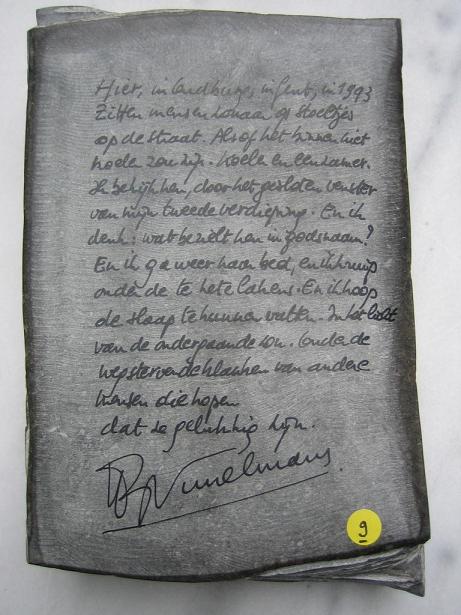 Hier, in landburger in Gent, in 1993
zitten mensen 's op stoeltjes
op de straat. Alsof het binnen niet
koeler zou zijn. Koeler en eenzamer.
Ik bekijk hen, door het gesloten venster
van mijn tweede verdieping. En ik
denk: wat bezielt hen in godsnaam?
En ik ga weer naar bed, en ik kruip
onder de te hete lakens. En ik hoop
de slaap te kunnen vatten. In het licht
van de ondergaande zon. Onder de
wegstervende klanken van andere
mensen die hopen
dat ze gelukkig zijn.
9